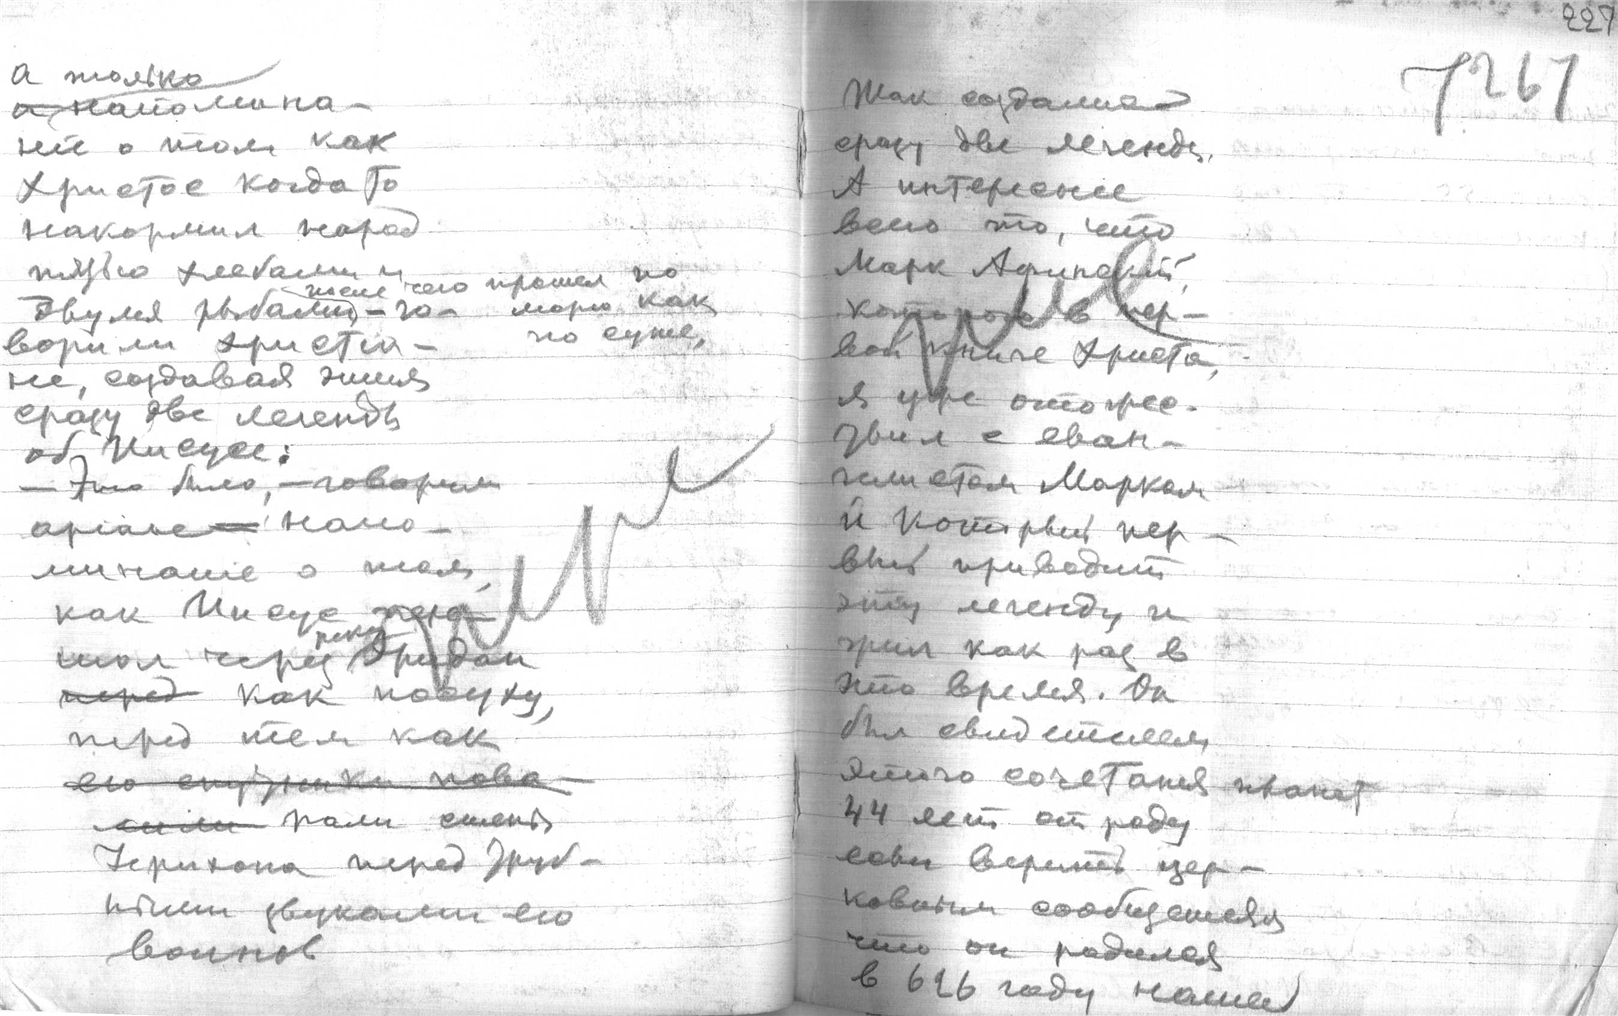 а только
а напомина-
ние о том как
Христос когдато
накормил народ
пятью хлебами и
двумя рыбами, - го-
после чего прошел по
морю как
по суше,
ворили христиа-
не, создавая этим
сразу две легенды
об Иисусе:
- Это было, - говорили
ариане - напо-
минание о том,
как Иисус пере-
шол через реку Иордан
перед как посуху,
перед тем как
его спутники пова-
лили пали стены
Иерихона перед труб-
ными звуками его
воинов
227
7267
Так создались
сразу две легенды.
А интереснее
всего то, что
Марк Афинский,
которого в пер-
вой книге Христа,
я уже отоже-
ствил с еван-
гелистом Марком
и который пер-
вый приводит
эту легенду и
жил как раз в
это время. Он
был свидетелем
этого сочетания планет
44 лет от роду
если верить цер-
ковным сообщениям
что он родился
в 626 году нашей